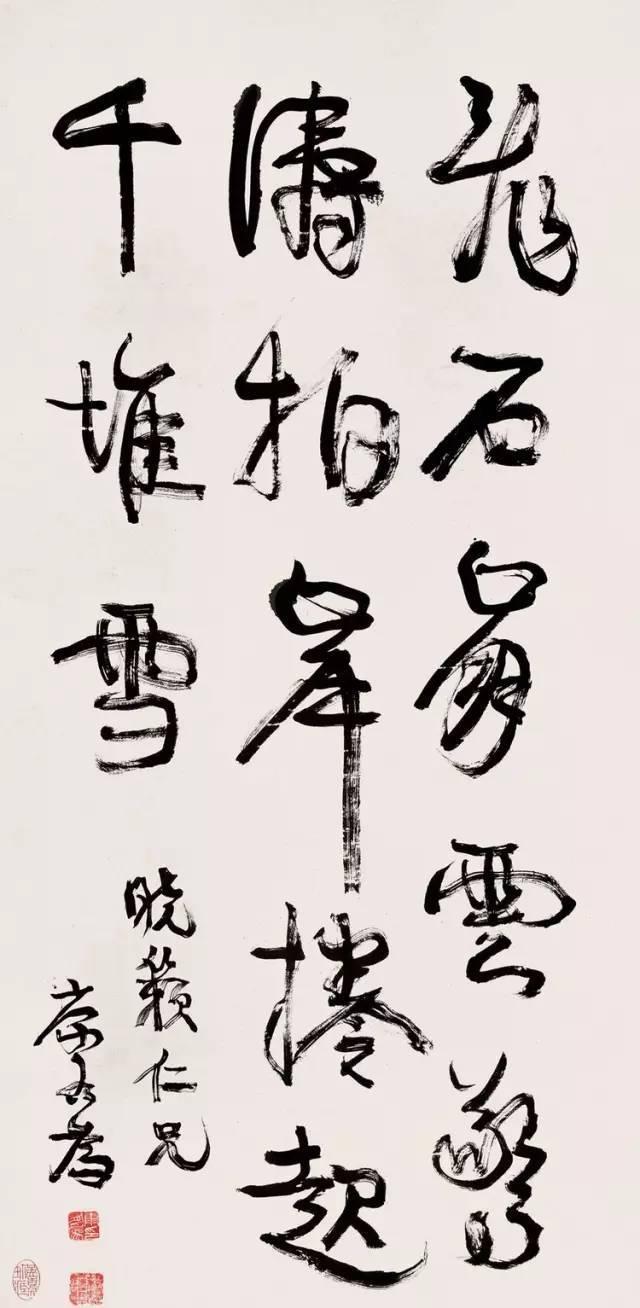 亂石崩雲驚
濤拍岸捲起
千堆雪
曉籟仁兄
康有為